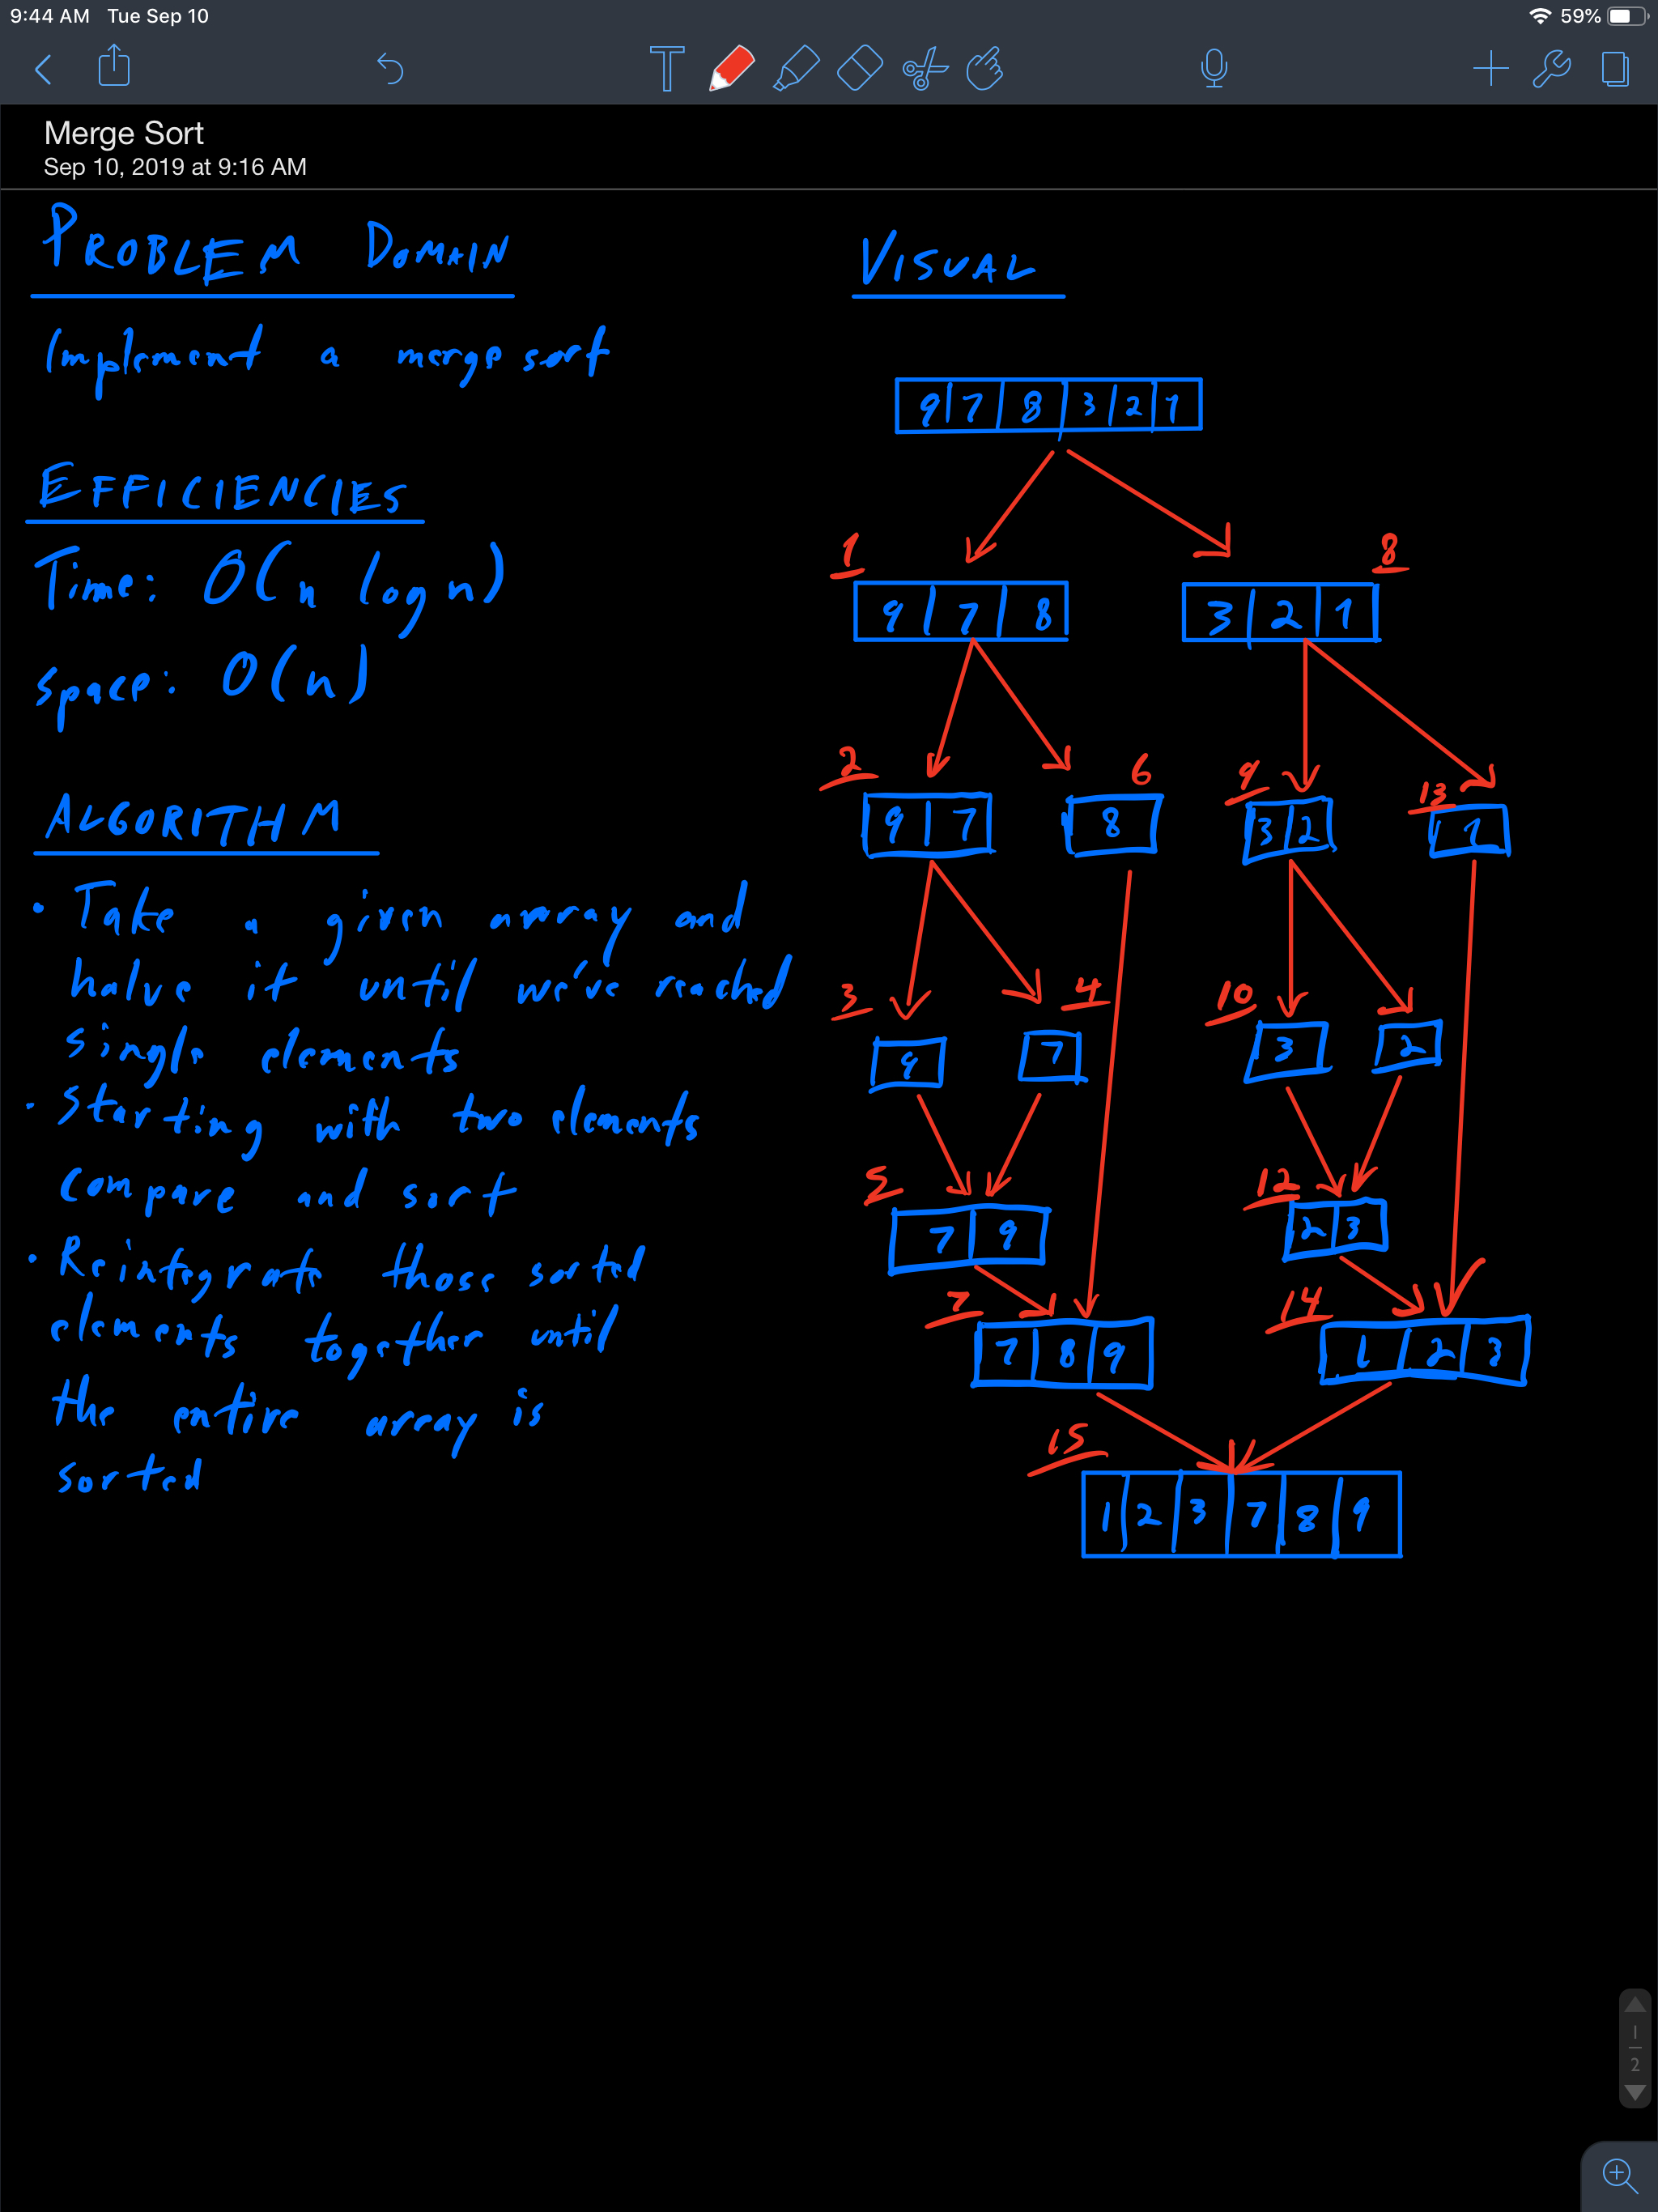 9:44 AM Tue Sep 10
59%
T
Merge Sort
Sep 10, 2019 at 9:16 AM
PROBLEM DOMAIN
Implement a merge sort
EFFICIENCIES
Time: O(n log n)
Space: O(n)
ALGORITHM
• Take a given array and
halve it until we've reached
single elements
• Starting with two elements
compare and sort
• Reintegrate those sorted
elements together until
the entire array is
sorted
VISUAL
9 7 8 3 2 1
1 8
9 7 8 3 2 1
2 6 9 13
9 7 8 3 2 1
3 4 10
9 7 3 2
5 12
7 9 2 3
7 14
7 8 9 1 2 3
15
1 2 3 7 8 9
1
2